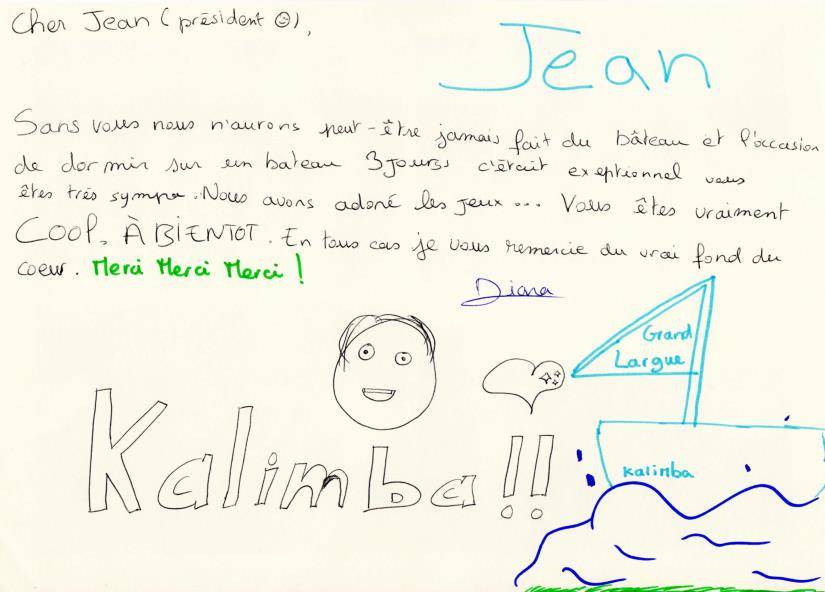 Cher Jean (président ☺),
Jean
Sans vous nous n'aurons peut-être jamais fait du bâteau et l'occasion
de dormir sur un bateau 3 jours c'était exeptionnel vous
êtes très sympa. Nous avons adoré les jeux... Vous êtes vraiment
COOL. À BIENTOT. En tous cas je vous remercie du vrai fond du
coeur. Merci Merci Merci !
Diana
Grand
Largue
Kalimba!!
Kalimba